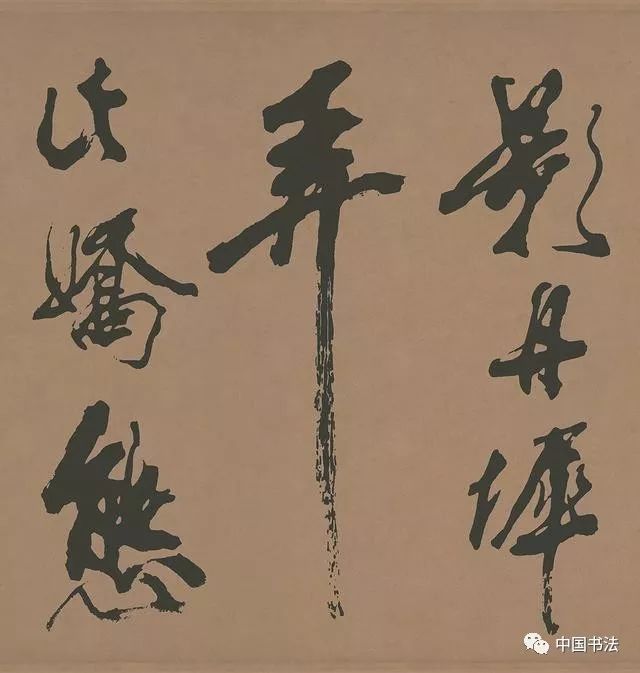 影丹墀
弄
此嬌態
中国书法